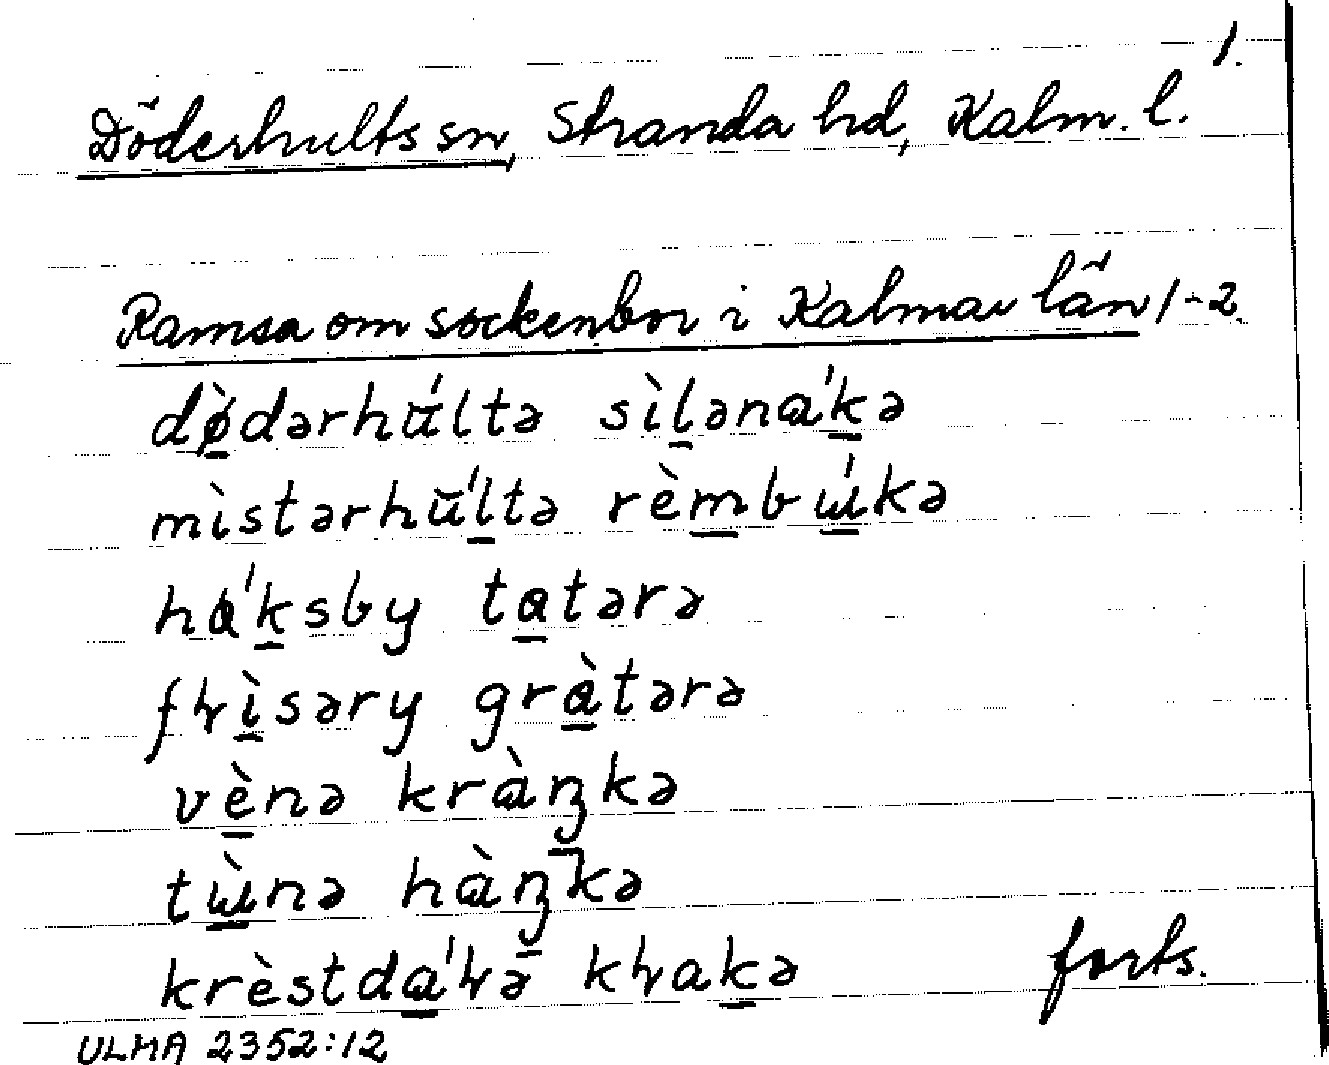 1.
Döderhults sn, Stranda hd, Kalm. l.
Ramsa om sockenbor i Kalmar län 1-2.
dø̠̀dərhu̇́ltə sìl̠əna̍k̠ə
mìstərhŭ́l̠tə rèm̠bɯ̠́kə
ha̍k̠sby ta̠tərə
fɬì̠səry grà̠tərə
vè̠nə kràŋ̠kə
tɯ̠̀nə hàŋ̠kə
krèstda̠̍ɬə kɬak̠ə
forts.
ULMA 2352:12